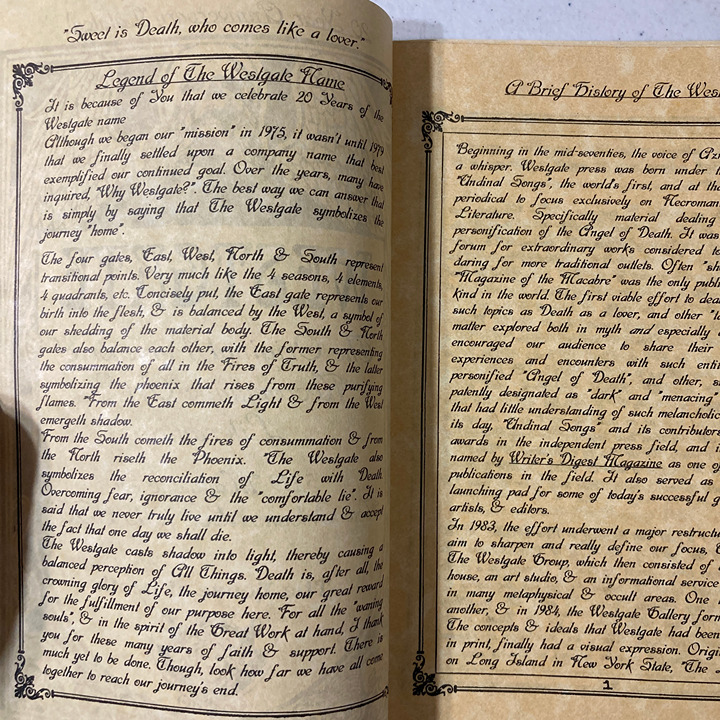 "Sweet is Death, who comes like a lover."
Legend of The Westgate Name
It is because of You that we celebrate 20 Years of the
Westgate name
Although we began our "mission" in 1975, it wasn't until 1979
that we finally settled upon a company name that best
exemplified our continued goal. Over the years, many have
inquired, "Why Westgate?". The best way we can answer that
is simply by saying that The Westgate symbolizes the
journey "home".
The four gates, East, West, North & South represent
transitional points. Very much like the 4 seasons, 4 elements,
4 quadrants, etc. Concisely put, the East gate represents our
birth into the flesh, & is balanced by the West, a symbol of
our shedding of the material body. The South & North
gates also balance each other, with the former representing
the consummation of all in the Fires of Truth, & the latter
symbolizing the phoenix that rises from these purifying
flames. "From the East commeth Light & from the West
emergeth shadow.
From the South cometh the fires of consummation & from
the North riseth the Phoenix. "The Westgate also
symbolizes the reconciliation of Life with Death.
Overcoming fear, ignorance & the "comfortable lie". It is
said that we never truly live until we understand & accept
the fact that one day we shall die.
The Westgate casts shadow into light, thereby causing a
balanced perception of All Things. Death is, after all, the
crowning glory of Life, the journey home, our great reward
for the fulfillment of our purpose here. For all the "waning
souls", & in the spirit of the Great Work at hand, I thank
you for these many years of faith & support. There is
much yet to be done. Though, look how far we have all come
together to reach our journey's end.
A Brief History of The
Beginning in the mid-seventies, the voice of
a whisper. Westgate press was born under
"Undinal Songs", the world's first, and at
periodical to focus exclusively on
Literature. Specifically material dealing
personification of the Angel of Death. It was
forum for extraordinary works considered
daring for more traditional outlets. Often
"Magazine of the Macabre" was the only
kind in the world. The first viable effort to
such topics as Death as a lover, and other
matter explored both in myth and especially
encouraged our audience to share their
experiences and encounters with such
personified "Angel of Death", and other,
patently designated as "dark" and "menacing"
that had little understanding of such
its day, "Undinal Songs" and its
awards in the independent press field, and
named by Writer's Digest Magazine as one
publications in the field. It also served as
launching pad for some of today's successful
artists, & editors.
In 1983, the effort underwent a major
aim to sharpen and really define our focus,
The Westgate Group, which then consisted of
house, an art studio, & an informational
in many metaphysical & occult areas. One
another, & in 1984, the Westgate Gallery
The concepts & ideals that Westgate had
in print, finally had a visual expression.
on Long Island in New York State, "The
1